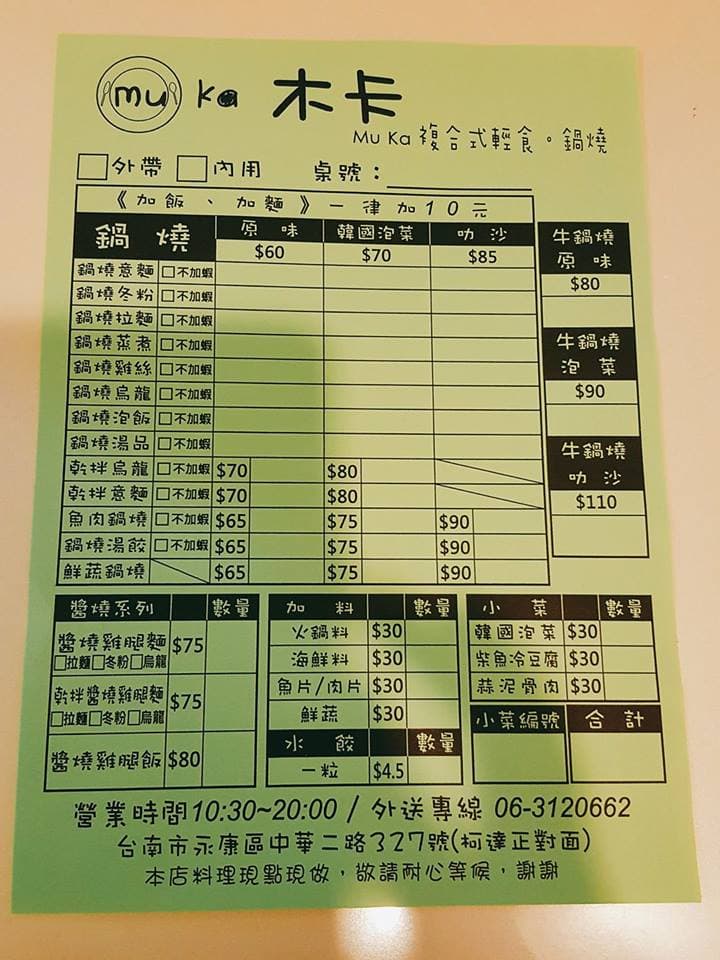 mu Ka 木卡
Mu Ka 複合式輕食。鍋燒
□外帶 □內用 桌號：
《加飯、加麵》一律加10元
鍋燒 原味 韓國泡菜 叻沙
$60 $70 $85
鍋燒意麵 □不加蝦
鍋燒冬粉 □不加蝦
鍋燒拉麵 □不加蝦
鍋燒蒸煮 □不加蝦
鍋燒雞絲 □不加蝦
鍋燒烏龍 □不加蝦
鍋燒泡飯 □不加蝦
鍋燒湯品 □不加蝦
乾拌烏龍 □不加蝦 $70 $80
乾拌意麵 □不加蝦 $70 $80
魚肉鍋燒 □不加蝦 $65 $75 $90
鍋燒湯餃 □不加蝦 $65 $75 $90
鮮蔬鍋燒 $65 $75 $90
牛鍋燒
原味
$80
牛鍋燒
泡菜
$90
牛鍋燒
叻沙
$110
醬燒系列 數量
醬燒雞腿麵 $75
□拉麵□冬粉□烏龍
乾拌醬燒雞腿麵 $75
□拉麵□冬粉□烏龍
醬燒雞腿飯 $80
加料 數量
火鍋料 $30
海鮮料 $30
魚片/肉片 $30
鮮蔬 $30
水餃 數量
一粒 $4.5
小菜 數量
韓國泡菜 $30
柴魚冷豆腐 $30
蒜泥骨肉 $30
小菜編號 合計
營業時間10:30~20:00 / 外送專線 06-3120662
台南市永康區中華二路327號(柯達正對面)
本店料理現點現做，敬請耐心等候，謝謝